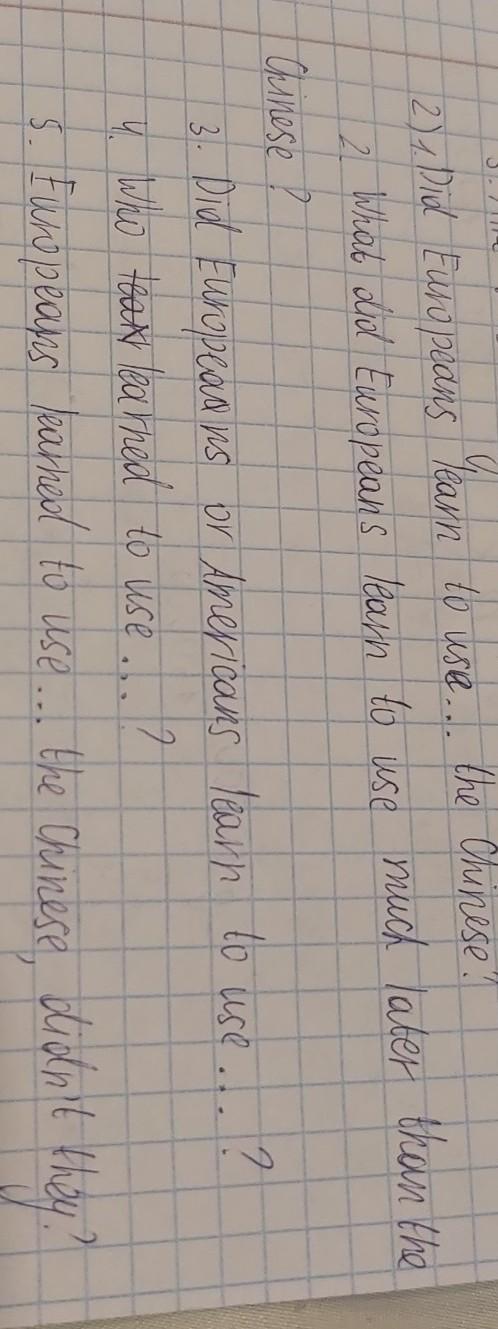 2) 1. Did Europeans learn to use... the Chinese?
2. What did Europeans learn to use much later than the
Chinese?
3. Did Europeans or Americans learn to use...?
4. Who learned to use...?
5. Europeans learned to use... the Chinese, didn't they?